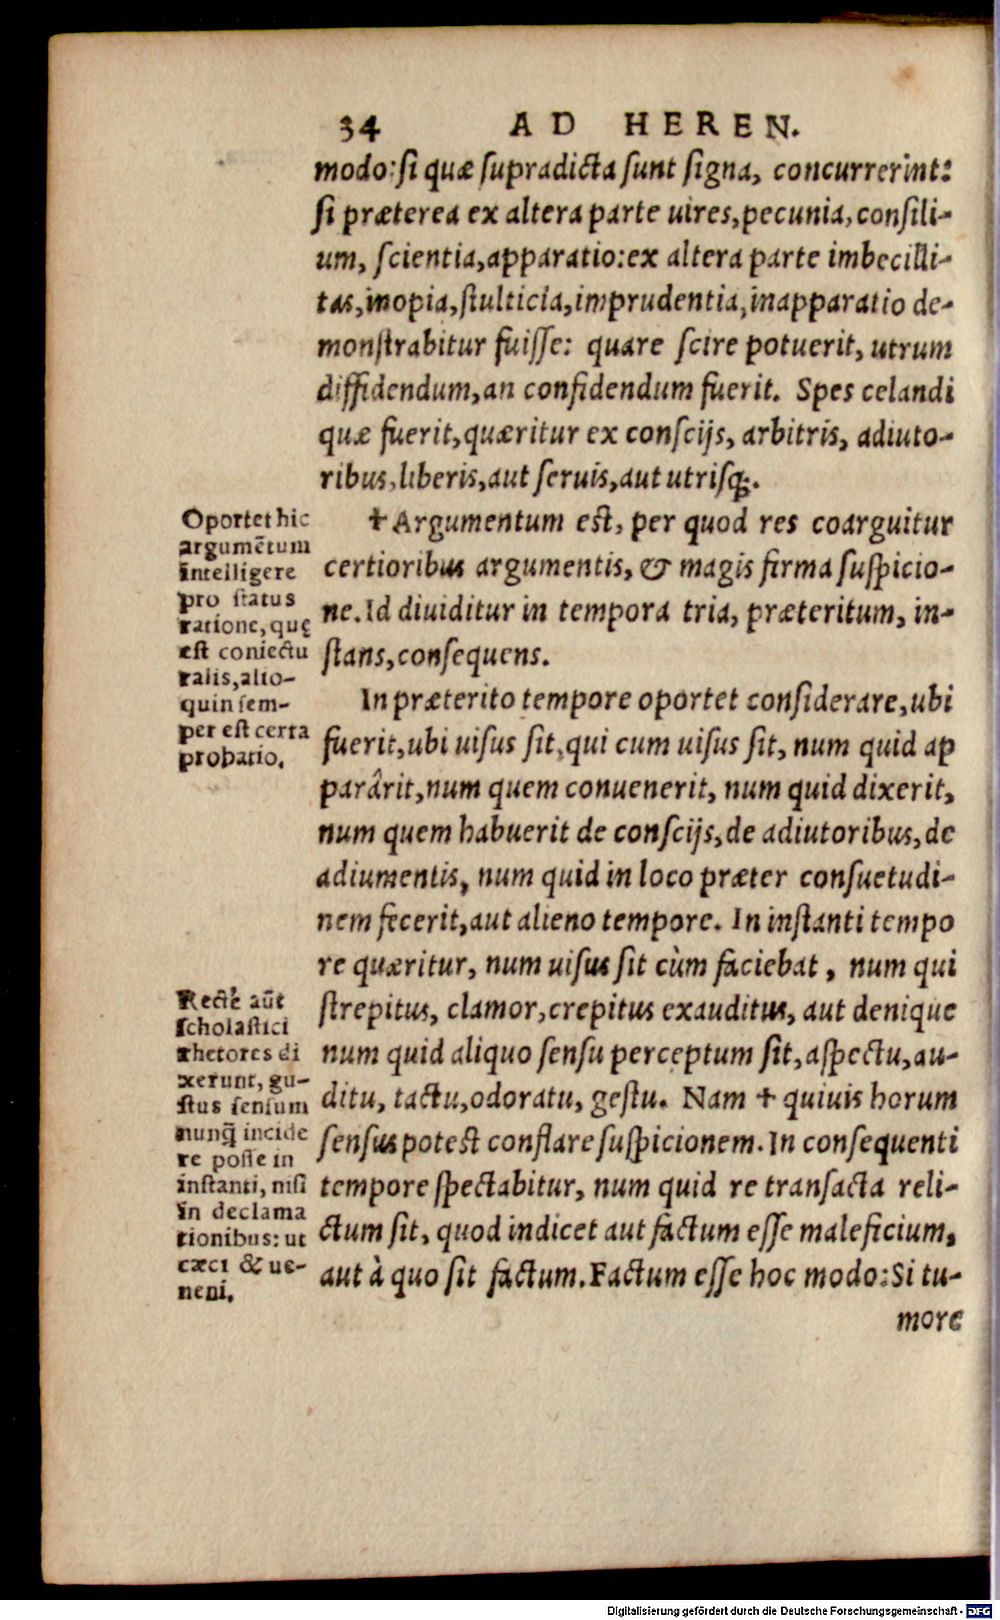 34 AD HEREN.
modo: si quæ supradicta sunt signa, concurrerint:
si præterea ex altera parte uires, pecunia, consili-
um, scientia, apparatio: ex altera parte imbecilli-
tas, inopia, stulticia, imprudentia, inapparatio de-
monstrabitur fuisse: quare scire potuerit, utrum
diffidendum, an confidendum fuerit. Spes celandi
quæ fuerit, quæritur ex conscijs, arbitris, adiuto-
ribus, liberis, aut seruis, aut utrisq;.
✝Argumentum est, per quod res coarguitur
certioribus argumentis, & magis firma suspicio-
ne. Id diuiditur in tempora tria, præteritum, in-
stans, consequens.
In præterito tempore oportet considerare, ubi
fuerit, ubi uisus sit, qui cum uisus sit, num quid ap
parârit, num quem conuenerit, num quid dixerit,
num quem habuerit de conscijs, de adiutoribus, de
adiumentis, num quid in loco præter consuetudi-
nem fecerit, aut alieno tempore. In instanti tempo
re quæritur, num uisus sit cùm faciebat, num qui
strepitus, clamor, crepitus exauditus, aut denique
num quid aliquo sensu perceptum sit, aspectu, au-
ditu, tactu, odoratu, gestu. Nam ✝ quiuis horum
sensus potest conflare suspicionem. In consequenti
tempore spectabitur, num quid re transacta reli-
ctum sit, quod indicet aut factum esse maleficium,
aut à quo sit factum. Factum esse hoc modo: Si tu-
more
Oportet hic
argumētum
intelligere
pro status
ratione, quę
est coniectu
ralis, alio-
quin sem-
per est certa
probatio.
Rectè aūt
scholastici
rhetores di
xerunt, gu-
stus sensum
nunq̄ incide
re posse in
instanti, nisi
in declama
tionibus: ut
cæci & ue-
neni.
Digitalisierung gefördert durch die Deutsche Forschungsgemeinschaft - DFG